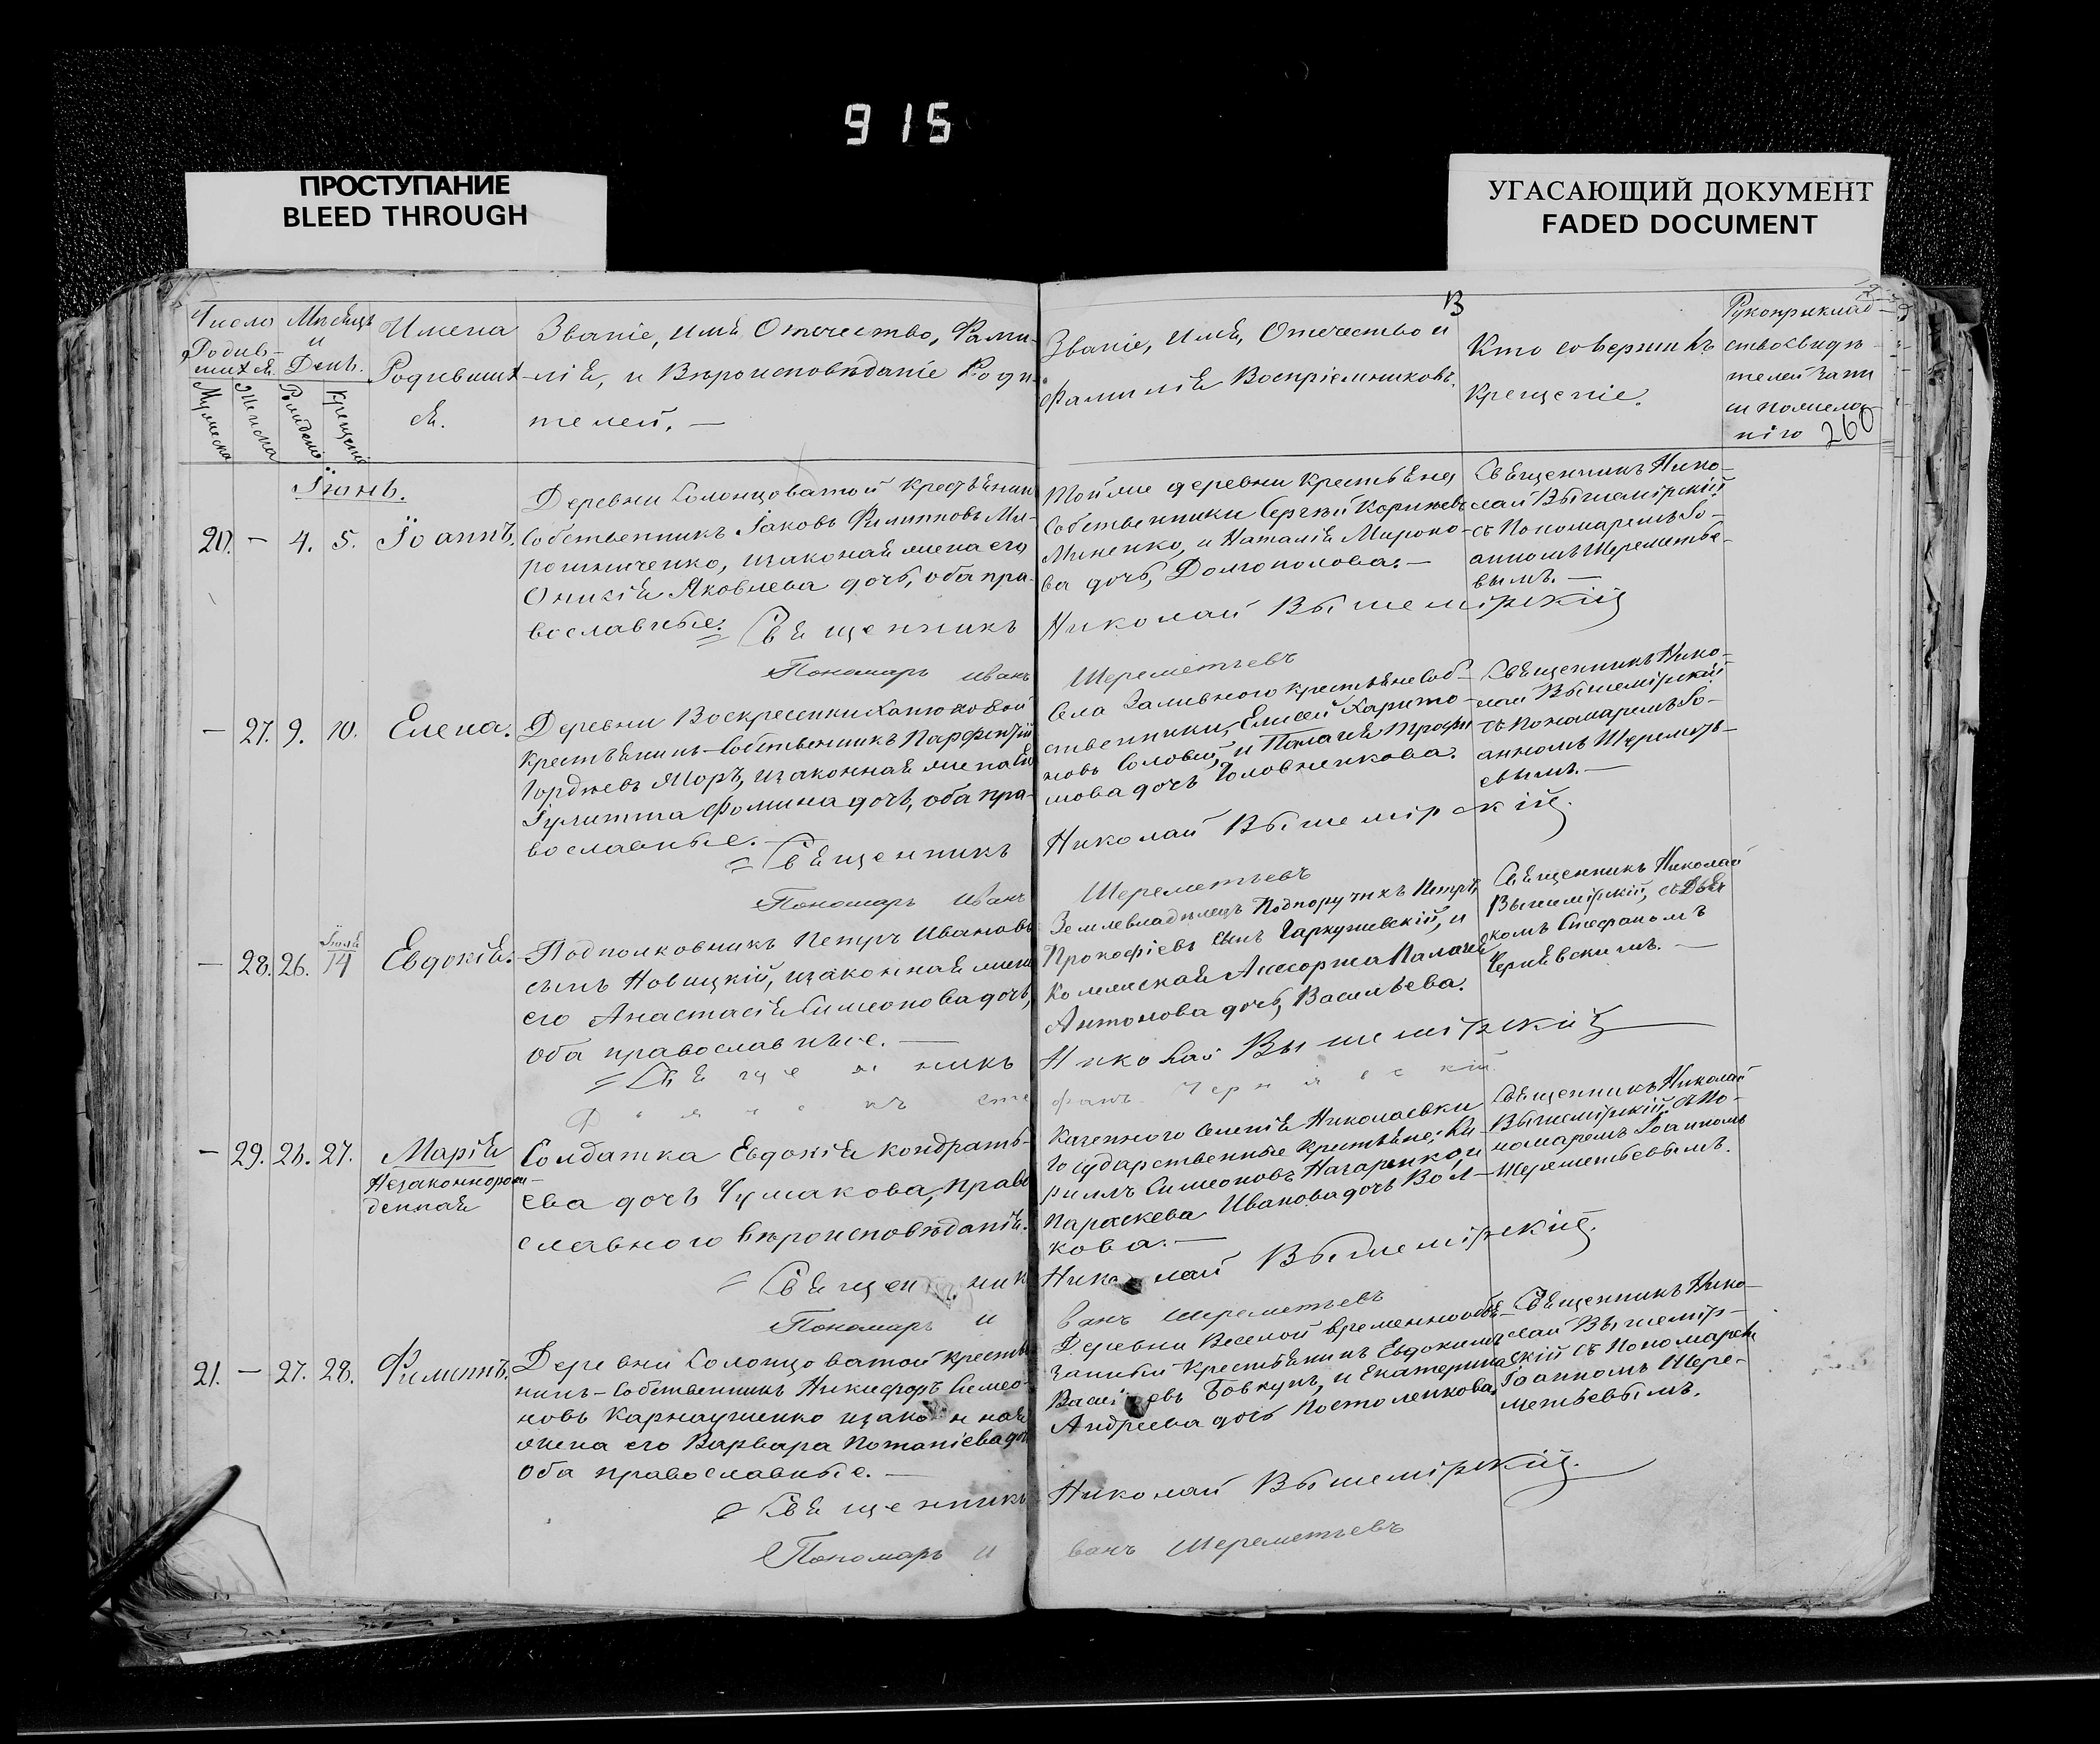 915
ПРОСТУПАНИЕ
BLEED THROUGH
УГАСАЮЩИЙ ДОКУМЕНТ
FADED DOCUMENT
Число Родив-шихся
Мужеска
Женска
Мѣсяцъ и День.
Рожденія
Крещенія
Имена
Родивших
ся.
Званіе, имя, Отчество, Фами-
лія, и Вѣроисповѣданіе Роди-
телей. —
13
Званіе, Имя, Отчество и
Фамилія Воспріемниковъ.
Кто совершилъ
Крещеніе.
Рукоприклад-
ство свидѣ-
телей запи
си по жела-
нію 260
Іюнь.
20. — 4. 5. Іоаннъ.
Деревни Солонцоватой крестьянин
Собственникъ Іаковъ Филипповъ Ми-
рошниченко, изаконая жена его
Оникія Яковлева дочь, оба пра-
вославные.
Священникъ
Пономарь Иванъ
Той же деревни крестьяне
Собственники Сергѣй
Миненко, и Наталія Мироно-
ва дочь, Долгополова. —
Николай Вышемірскій
Шереметьевъ
Священникъ Нико-
лай Вышемірскій
съ Пономаремъ Іо-
анномъ Шереметье-
вымъ. —
— 27. 9. 10. Елена.
Деревни Воскресенки
крестьянинъ-Собственникъ Парфентій
Гордѣевъ Моръ, изаконная жена его
Іулитта Фомина дочь, оба пра-
вославные.
Священникъ
Пономарь Иванъ
Села Заливного крестьяне Соб-
ственники, Елисей Харито-
новъ Соловей, и Палагія Трофи
мова дочь Головненкова.
Николай Вышемірскій.
Шереметьевъ
Священникъ Нико-
лай Вышемірскій
съ Пономаремъ Іо-
анномъ Шереметь-
евымъ. —
— 28. 26. Іюля 14 Евдокія.
Подполковникъ Петръ Ивановъ
сынъ Новицкій, изаконная жена
его Анастасія Симеонова дочь,
оба православные. —
Священникъ
Дьячокъ Сте
Землевладѣлецъ Подпоручикъ Петръ
Прокофіевъ сынъ Гаркушевскій, и
Колежская Ассесорша Палагія
Антонова дочь, Васильева.
Николай Вышемірскій
фанъ Чернявскій
Священникъ Николай
Вышемірскій, съ Дья
комъ Стефаномъ
Чернявскимъ. —
— 29. 26. 27. Марія
Незаконнорож-
денная
Солдатка Евдокія Кондрать-
ева дочь Чумакова, право
славного вѣроисповѣданія.
Священник
Пономарь И
Казенного Селенія Николаевки
Государственные крестьяне: Ки-
риллъ Симеоновъ Назаренко, и
Параскева Иванова дочь Вол-
кова. —
Николай Вышемірскій.
ванъ Шереметьевъ
Священникъ Николай
Вышемірскій, съ По-
номаремъ Іоанномъ
Шереметьевымъ.
21. — 27. 28. Филиппъ.
Деревни Солонцоватой крестья
нинъ-Собственникъ Никифоръ Симео-
новъ Карнаушенко изаконная
жена его Варвара Потапіева дочь
Оба православные. —
Священникъ
Пономарь И
Деревни Веселой временнообя-
занный крестьянинъ Евдокимъ
Васильевъ Бовкунъ, и Екатерина
Андреева дочь Постоленкова.
Николай Вышемірскій.
ванъ Шереметьевъ
Священникъ Нико-
лай Вышемір-
скій съ Пономарем
Іоанномъ Шере-
метьевымъ.